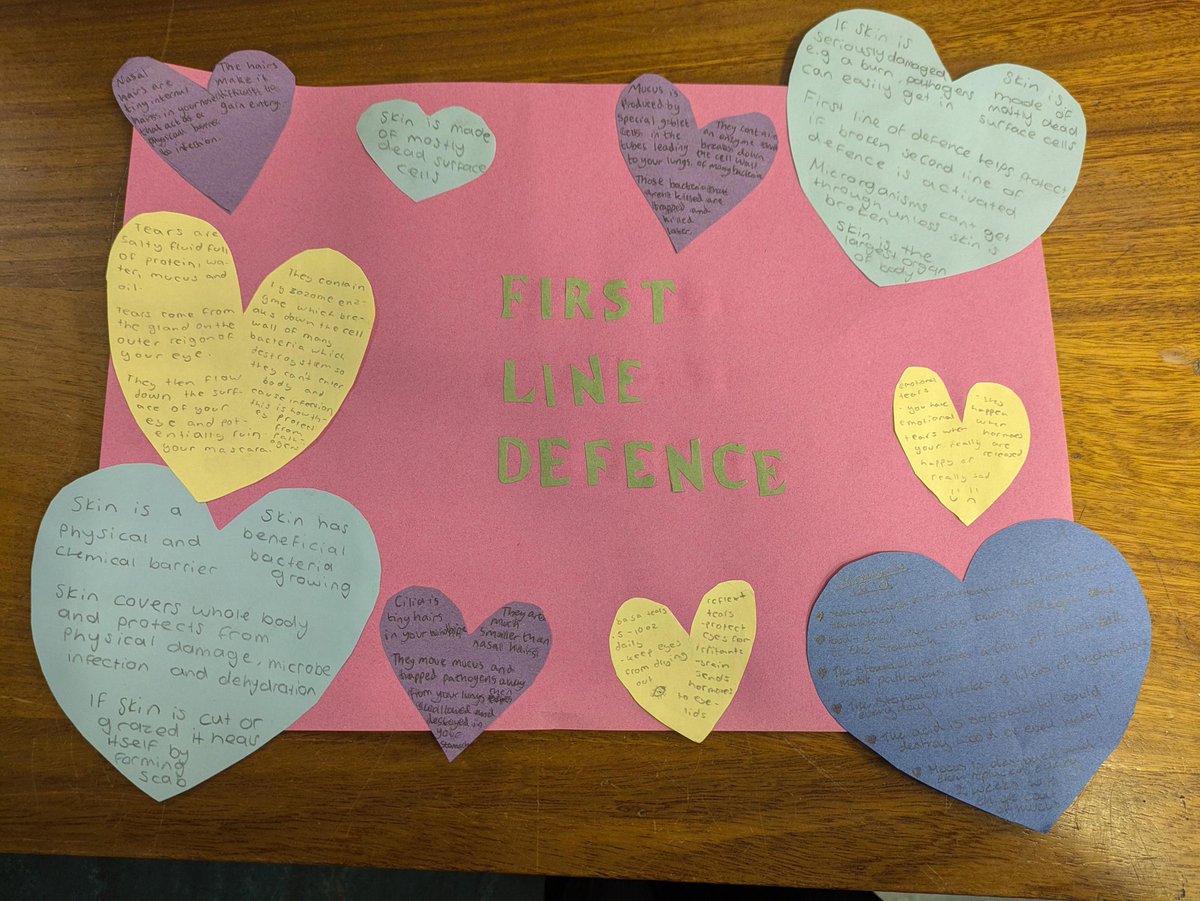 FIRST
LINE
DEFENCE
Nasal
hairs are
tiny internal
hairs in your nose
that act as a
physical barrier
to infection.
The hairs
make it
difficult to
gain entry.
Skin is made
of mostly
dead surface
cells
Mucus is
Produced by
Special goblet
cells in the
tubes leading
to your lungs.
They contain
an enzyme that
breaks down
the cell wall
of many bacteria
Those bacteria that
aren't killed are
trapped and
killed
later.
If skin is
seriously damaged
e.g a burn, pathogens
can easily get in
Skin is
made of
mostly dead
surface cells
First line of defence helps protect
if broken second line of
defence is activated
Microrganisms can't get
through unless skin is
broken
Skin is the
largest organ
of body
Tears are
salty fluid full
of protein, wa-
ter, mucus and
oil.
Tears come from
the gland on the
outer reigon of
your eye.
They then flow
down the surf-
ace of your
eye and pot-
entially ruin
your mascara.
They contain
lysozome enz-
yme which bre-
aks down the cell
wall of many
bacteria which
destroys them so
they can't enter
body and
cause infection
this is how th-
ey protect
from
path-
ogens
emotional
tears
- you have
emotional
tears when
your really
happy or
really sad
- they
happen
when
hormones
are
released
Skin is a
physical and
chemical barrier
Skin has
beneficial
bacteria
growing
Skin covers whole body
and protects from
physical damage, microbe
infection and dehydration
If skin is cut or
grazed it heals
itself by
forming
scab
Cilia is
tiny hairs
in your
They are
much
smaller than
nasal hairs!
They move mucus and
trapped pathogens away
from your lungs then
swallowed and
destroyed in
your
stomach
basa tears
- 5-10oz
daily
- keep eyes
from drying
out
reflext
tears
- protect
eyes from
irritants
- brain
sends
hormones
to eye-
lids
The stomach
The acid is so powerful it could
destroy wood or even metal